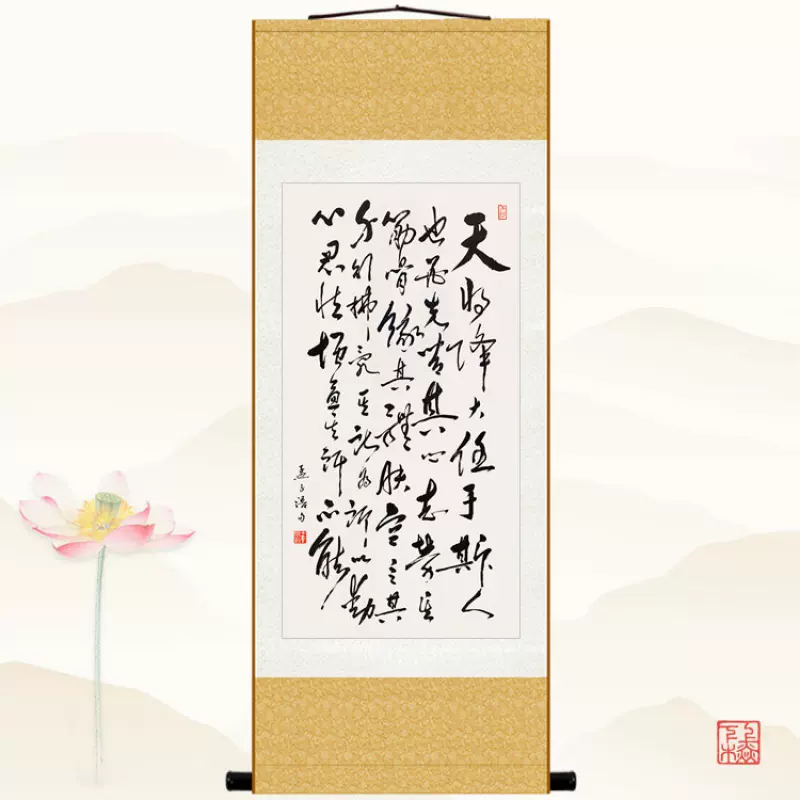 天将降大任于斯人
也必先苦其心志劳其
筋骨饿其體肤空乏其
身行拂乱其所为所以动
心忍性增益其所不能
孟子语句